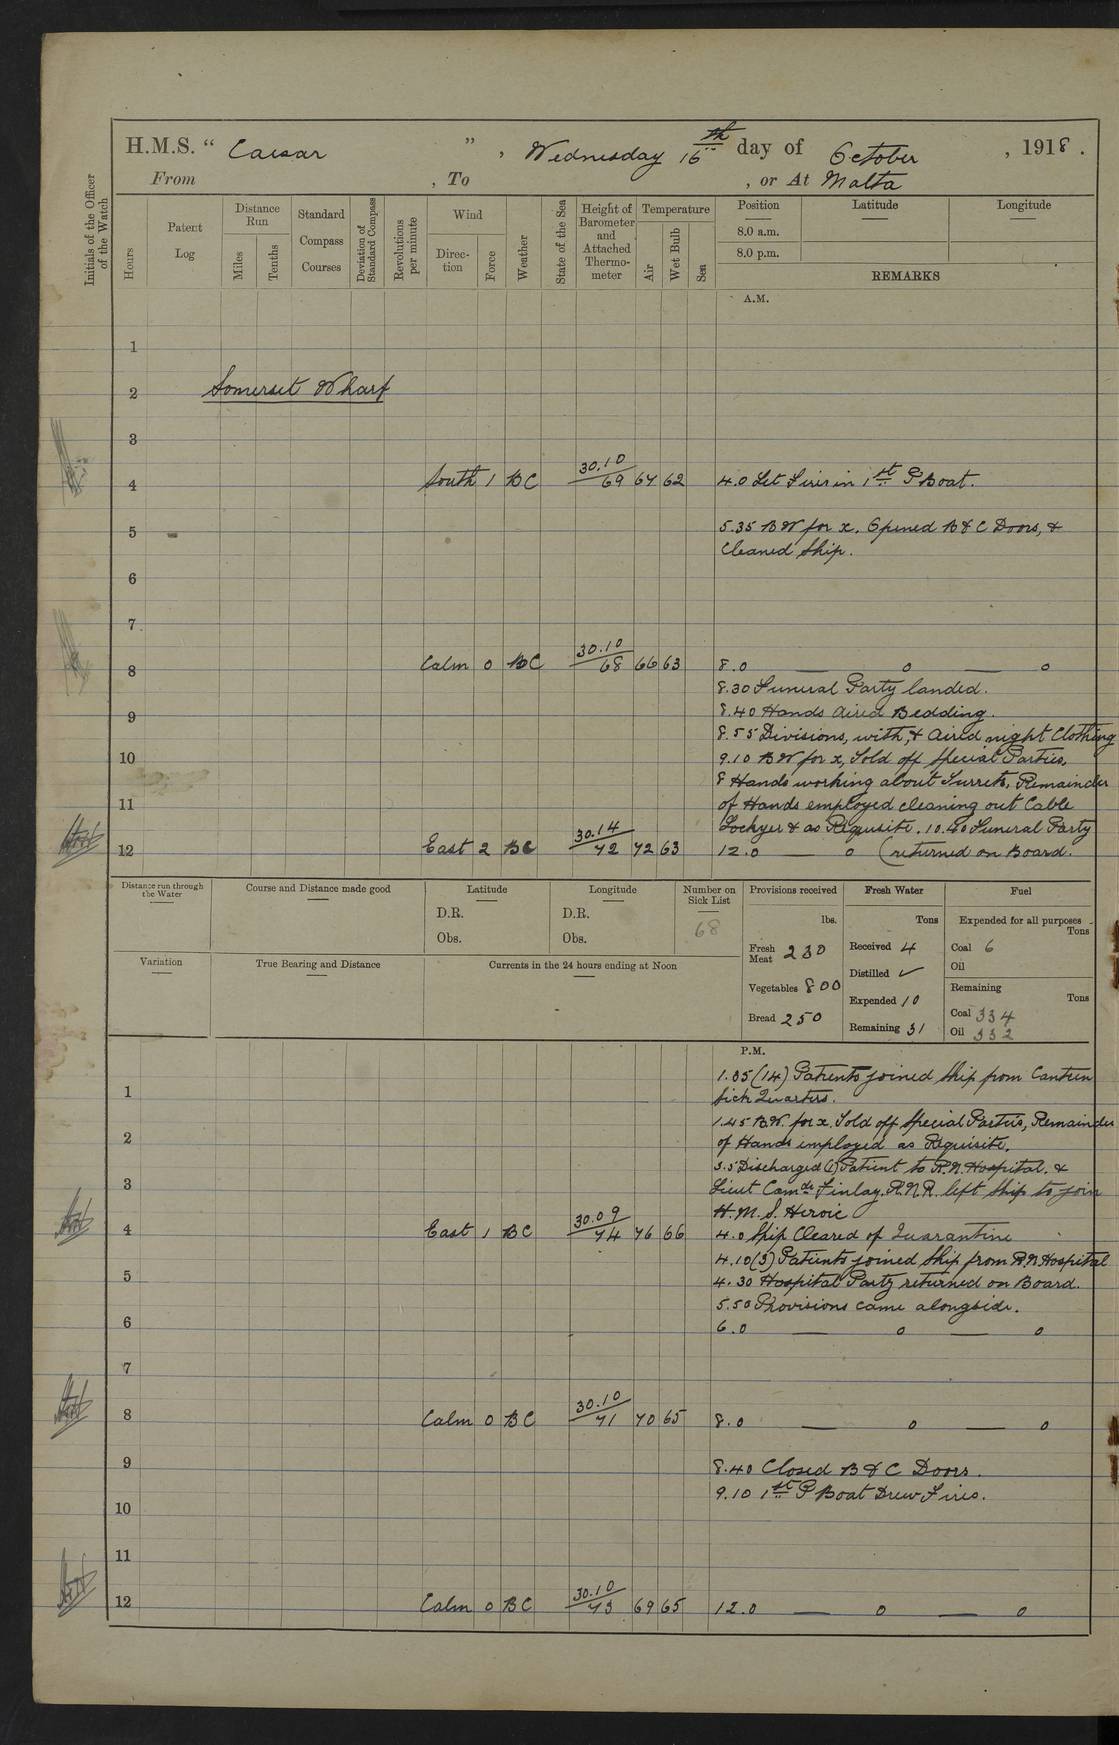 H.M.S. “ Caesar ” , Wednesday 16th day of October , 1918 .
From , To , or At Malta
Initials of the Officer of the Watch
Hours
Patent Log
Distance Run
Miles
Tenths
Standard Compass Courses
Deviation of Standard Compass
Revolutions per minute
Wind
Direc-tion
Force
Weather
State of the Sea
Height of Barometer and Attached Thermo-meter
Temperature
Air
Wet Bulb
Sea
Position Latitude Longitude
8.0 a.m.
8.0 p.m.
REMARKS
A.M.
1
2 Somerset Wharf
3
4 South 1 BC 30.10/69 67 62 4.0 Let Fires in 1st P Boat.
5 5.35 BW for x. Opened B & C Doors, &
Cleaned Ship.
6
7
8 Calm 0 BC 30.10/68 66 63 8.0 — o — o
8.30 Funeral Party landed.
9 8.40 Hands Aired Bedding.
8.55 Divisions, with, & Aired night Clothing
10 9.10 BW for x, Told off Special Parties,
8 Hands working about Turrets, Remainder
11 of Hands employed cleaning out Cable
Lockyer & as Requisite. 10.40 Funeral Party
12 East 2 BC 30.14/72 72 63 12.0 — o (returned on Board.
Distance run through the Water
Course and Distance made good
Latitude
D.R.
Obs.
Longitude
D.R.
Obs.
Number on Sick List
68
Provisions received
lbs.
Fresh Meat 230
Vegetables 800
Bread 250
Fresh Water
Tons
Received 4
Distilled ✓
Expended 10
Remaining 31
Fuel
Expended for all purposes
Tons
Coal 6
Oil
Remaining
Tons
Coal 334
Oil 332
Variation
True Bearing and Distance
Currents in the 24 hours ending at Noon
P.M.
1.35 (14) Patients joined Ship from Canteen
1 Sick Quarters.
1.45 BW. for x. Told off Special Parties, Remainder
2 of Hands employed as Requisite.
3.5 Discharged (1) Patient to R.N. Hospital. &
3 Lieut Comdr Finlay. R.N.R. left Ship to join
H.M.S. Heroic
4 East 1 BC 30.09/74 76 66 4.0 Ship Cleared of Quarantine
4.10 (3) Patients joined Ship from R.N Hospital
5 4.30 Hospital Party returned on Board.
5.50 Provisions came alongside.
6 6.0 — o — o
7
8 Calm 0 BC 30.10/71 70 65 8.0 — o — o
9 8.40 Closed B & C Doors.
9.10 1st P Boat Drew Fires.
10
11
12 Calm 0 BC 30.10/73 69 65 12.0 — o — o